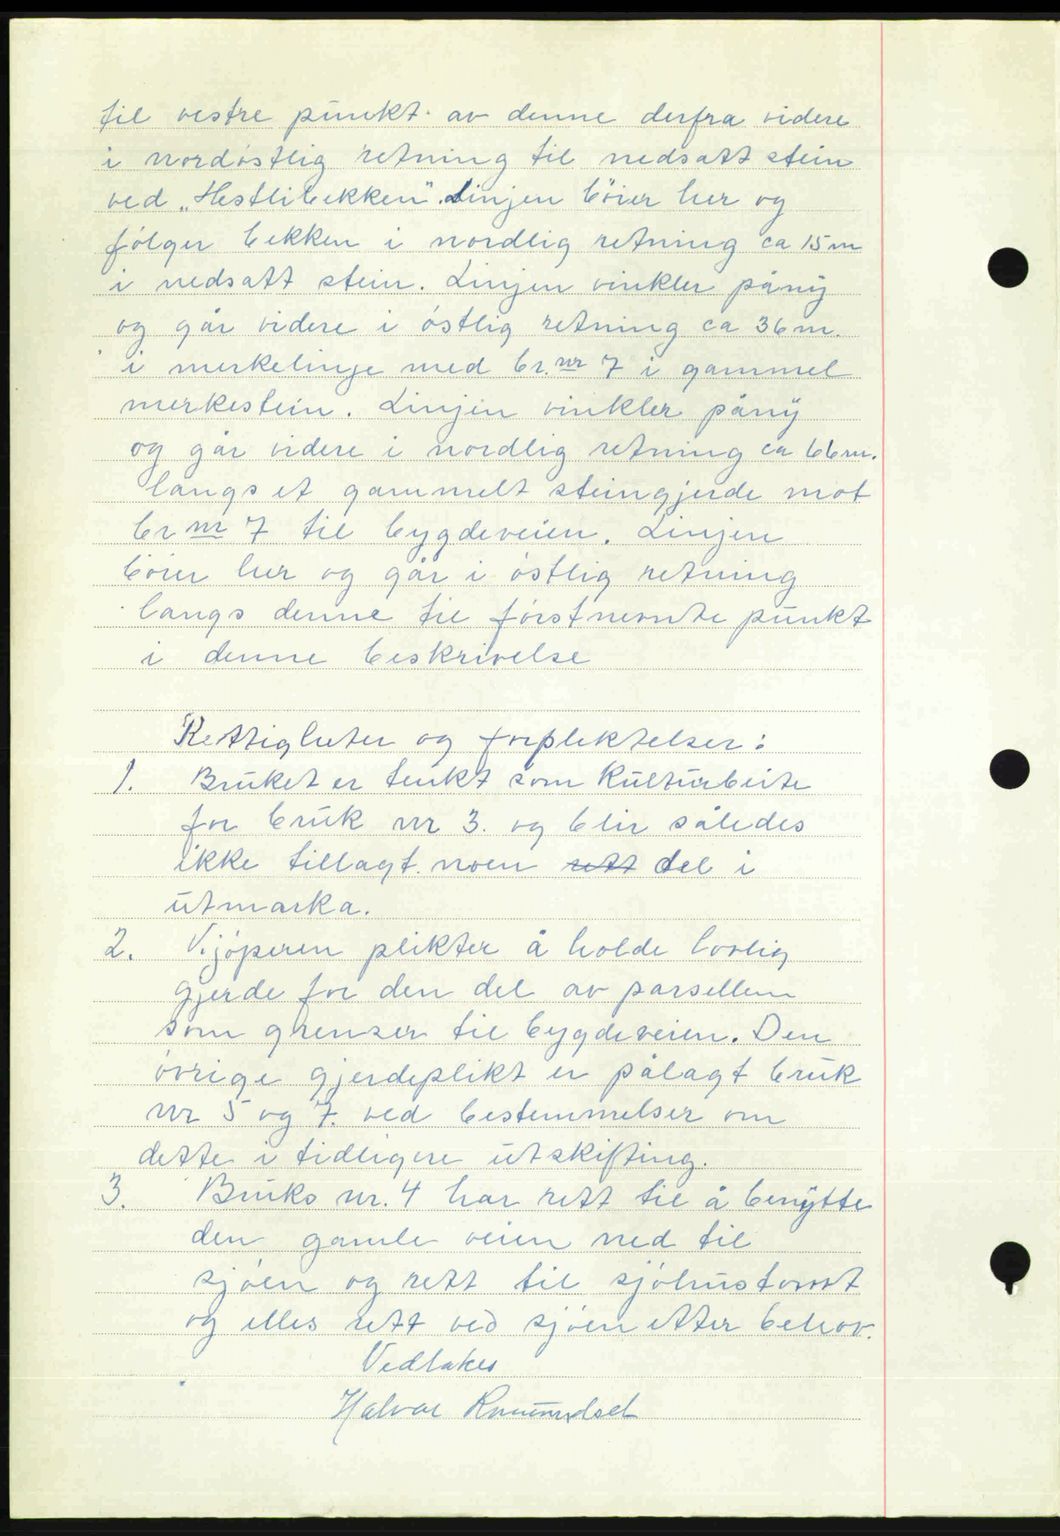 til vestre punkt av denne derfra videre
i nordøstlig retning til nedsatt stein
ved „Hestlibekken". Linjen bøier her og
følger bekken i nordlig retning ca 15 m
i nedsatt stein. Linjen vinkler påny
og går videre i østlig retning ca 36 m.
i merkelinje med br. nr 7 i gammel
merkestein. Linjen vinkler påny
og går videre i nordlig retning ca 66 m.
langs et gammelt steingjerde mot
br nr 7 til bygdeveien. Linjen
bøier her og går i østlig retning
langs denne til førstnevnte punkt
i denne beskrivelse
Rettigheter og forpliktelser:
1. Bruket er tenkt som Kulturbeite
for bruk nr 3. og blir således
ikke tillagt noen rett del i
utmarka.
2. Kjøperen plikter å holde lovlig
gjerde for den del av parsellen
som grenser til bygdeveien. Den
øvrige gjerdeplikt er pålagt bruk
nr 5 og 7. ved bestemmelser om
dette i tidligere utskifting.
3. Bruks nr. 4 har rett til å benytte
den gamle veien ned til
sjøen og rett til sjøhustomt
og elles rett ved sjøen etter behov.
Vedtakes
Halvar